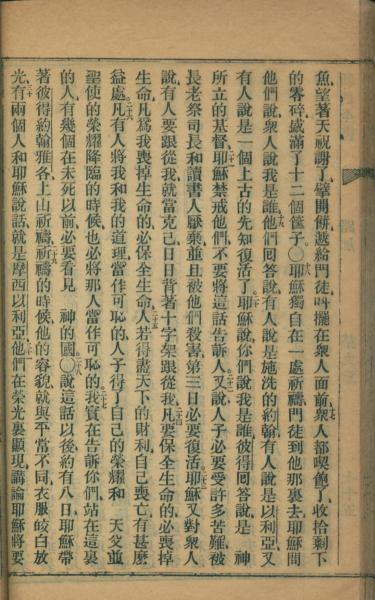 魚望著天祝謝了擘開餅遞給門徒叫擺在衆人面前衆人都喫飽了收拾剩下
的零碎盛滿了十二個筐子〇耶穌獨自在一處祈禱門徒到他那裏去耶穌問
他們說衆人說我是誰他們回答說有人說是施洗的約翰有人說是以利亞又
有人說是一個上古的先知復活了耶穌說你們說我是誰彼得回答說是 神
所立的基督耶穌禁戒他們不要將這話告訴人又說人子必要受許多苦難被
長老祭司長和讀書人厭棄並且被他們殺害第三日必要復活耶穌又對衆人
說有人要跟從我就當克己日日背著十字架跟從我凡要保全生命的必喪掉
生命凡爲我喪掉生命的必保全生命人若得盡天下的財利自己喪亡有甚麼
益處凡有人將我和我的道理當作可恥的人子得了自己的榮耀和 天父並
聖使的榮耀降臨的時候也必將那人當作可恥的我實在告訴你們站在這裏
的人有幾個在未死以前必要看見 神的國〇說這話以後約有八日耶穌帶
著彼得約翰雅各上山祈禱祈禱的時候他的容貌就與平常不同衣服皎白放
光有兩個人和耶穌說話就是摩西以利亞他們在榮光裏顯現講論耶穌將要